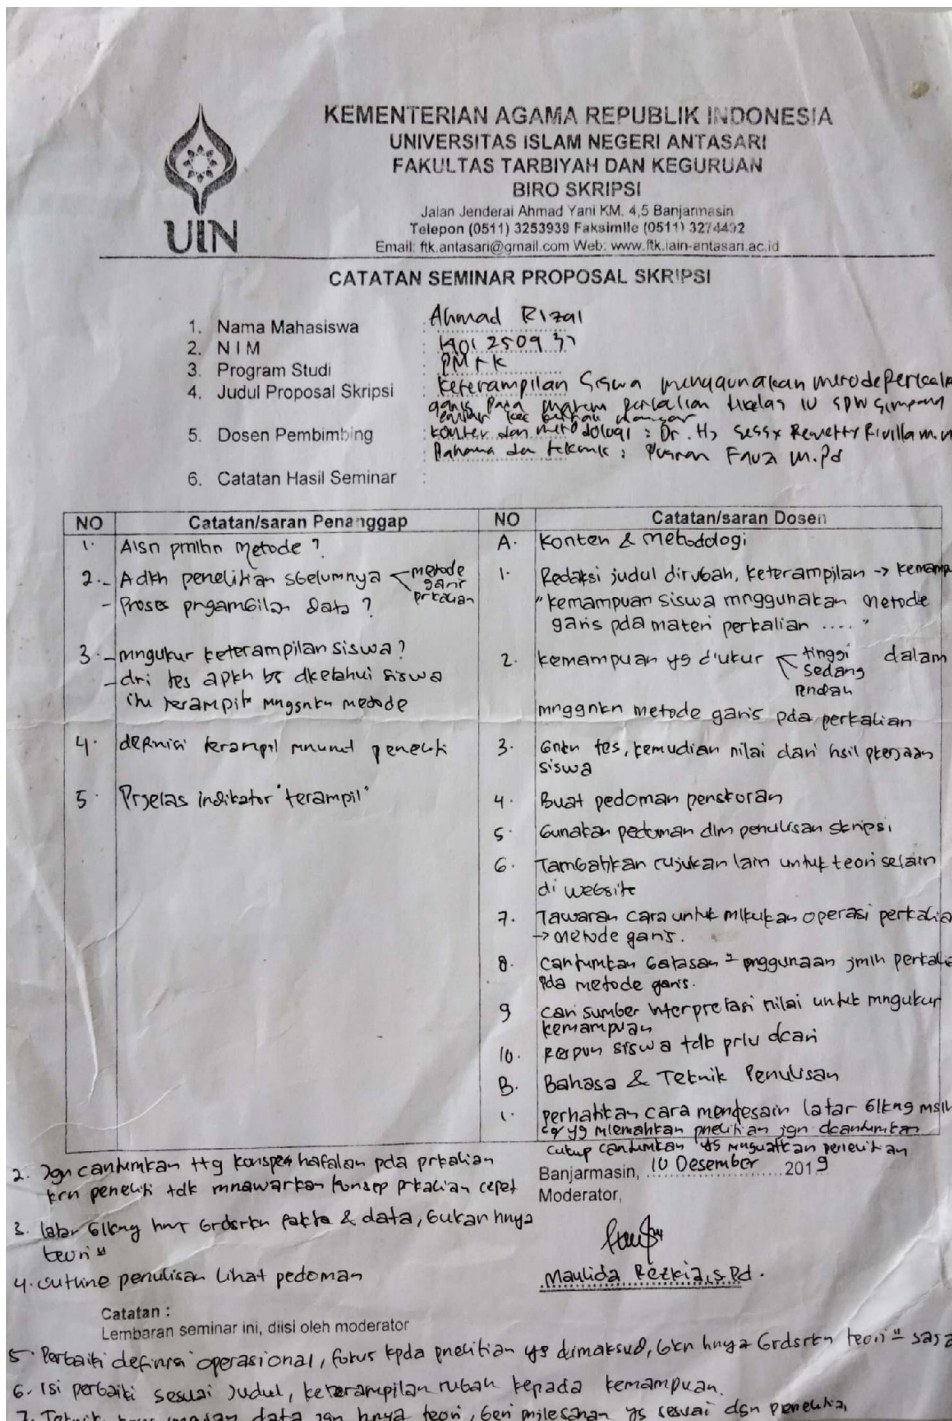 KEMENTERIAN AGAMA REPUBLIK INDONESIA
UNIVERSITAS ISLAM NEGERI ANTASARI
FAKULTAS TARBIYAH DAN KEGURUAN
BIRO SKRIPSI
UIN
Jalan Jenderal Ahmad Yani KM. 4,5 Banjarmasin
Telepon (0511) 3253939 Faksimile (0511) 3274492
Email: ftk.antasari@gmail.com Web: www.ftk.iain-antasari.ac.id
CATATAN SEMINAR PROPOSAL SKRIPSI
1. Nama Mahasiswa : Ahmad Rizal
2. N I M :
3. Program Studi :
4. Judul Proposal Skripsi : Keterampilan Siswa menggunakan metode
garis pada materi perkalian
5. Dosen Pembimbing : Konten dan metodologi : Dr. Hj
Bahasa dan teknik : Fauzi M.Pd
6. Catatan Hasil Seminar :
NO Catatan/saran Penanggap
1. Alsn pmlhn metode ?
2. - Adkh penelitian sbelumnya metode garis prkalian
- Proses prgambilan data ?
3. - mngukur keterampilan siswa?
- dri tes apkh bs dketahui siswa
itu terampil mnggnkn metode
4. definisi terampil mnurut peneliti
5. Prjelas indikator "terampil"
NO Catatan/saran Dosen
A. Konten & metodologi
1. Redaksi judul dirubah, keterampilan → kemamp
"kemampuan siswa mnggunakan metode
garis pda materi perkalian ...."
2. kemampuan yg d'ukur tinggi sedang rendah dalam
mnggnkn metode garis pda perkalian
3. Gnkn tes, kemudian nilai dari hsil pkerjaan
siswa
4. Buat pedoman penskoran
5. Gunakan pedoman dlm penulisan skripsi
6. Tambahkan rujukan lain untuk teori selain
di website
7. Tawaran cara untuk mlkukan operasi perkalia
→ metode garis.
8. Cantumkan batasan² pnggunaan jmlh perkalia
pda metode garis.
9 cari sumber interpretasi nilai untuk mngukur
kemampuan
10. Respon siswa tdk prlu dcari
B. Bahasa & Teknik Penulisan
1. perhatikan cara mendesain latar blkng mslh
yg mlemahkan pnelitian jgn dcantumkan
cukup cantumkan yg mnguatkan penelitian
2. Jgn cantumkan ttg konsep hafalan pda prkalian
krn peneliti tdk mnawarkan konsep prkalian cepat
3. latar blkng hrs brdsrkn fakta & data, bukan hnya
teori"
4. outline penulisan lihat pedoman
Banjarmasin, 10 Desember 2019
Moderator,
Maulida Rezkia, S.Pd.
Catatan :
Lembaran seminar ini, diisi oleh moderator
5. Perbaiki definisi operasional, fokus kpda pnelitian yg dimaksud, bkn hnya brdsrkn teori" saja
6. Isi perbaiki sesuai judul, keterampilan rubah kepada kemampuan.
7. data jgn hnya teori, beri pnjlesanan yg sesuai dgn peneliti